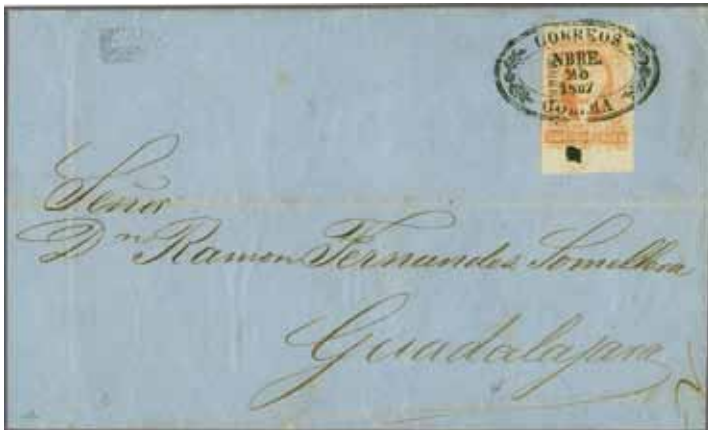 CORREOS
NBRE.
20
1867
COLIMA
Señor
Dn Ramon Fernandes Somellera
Guadalajara